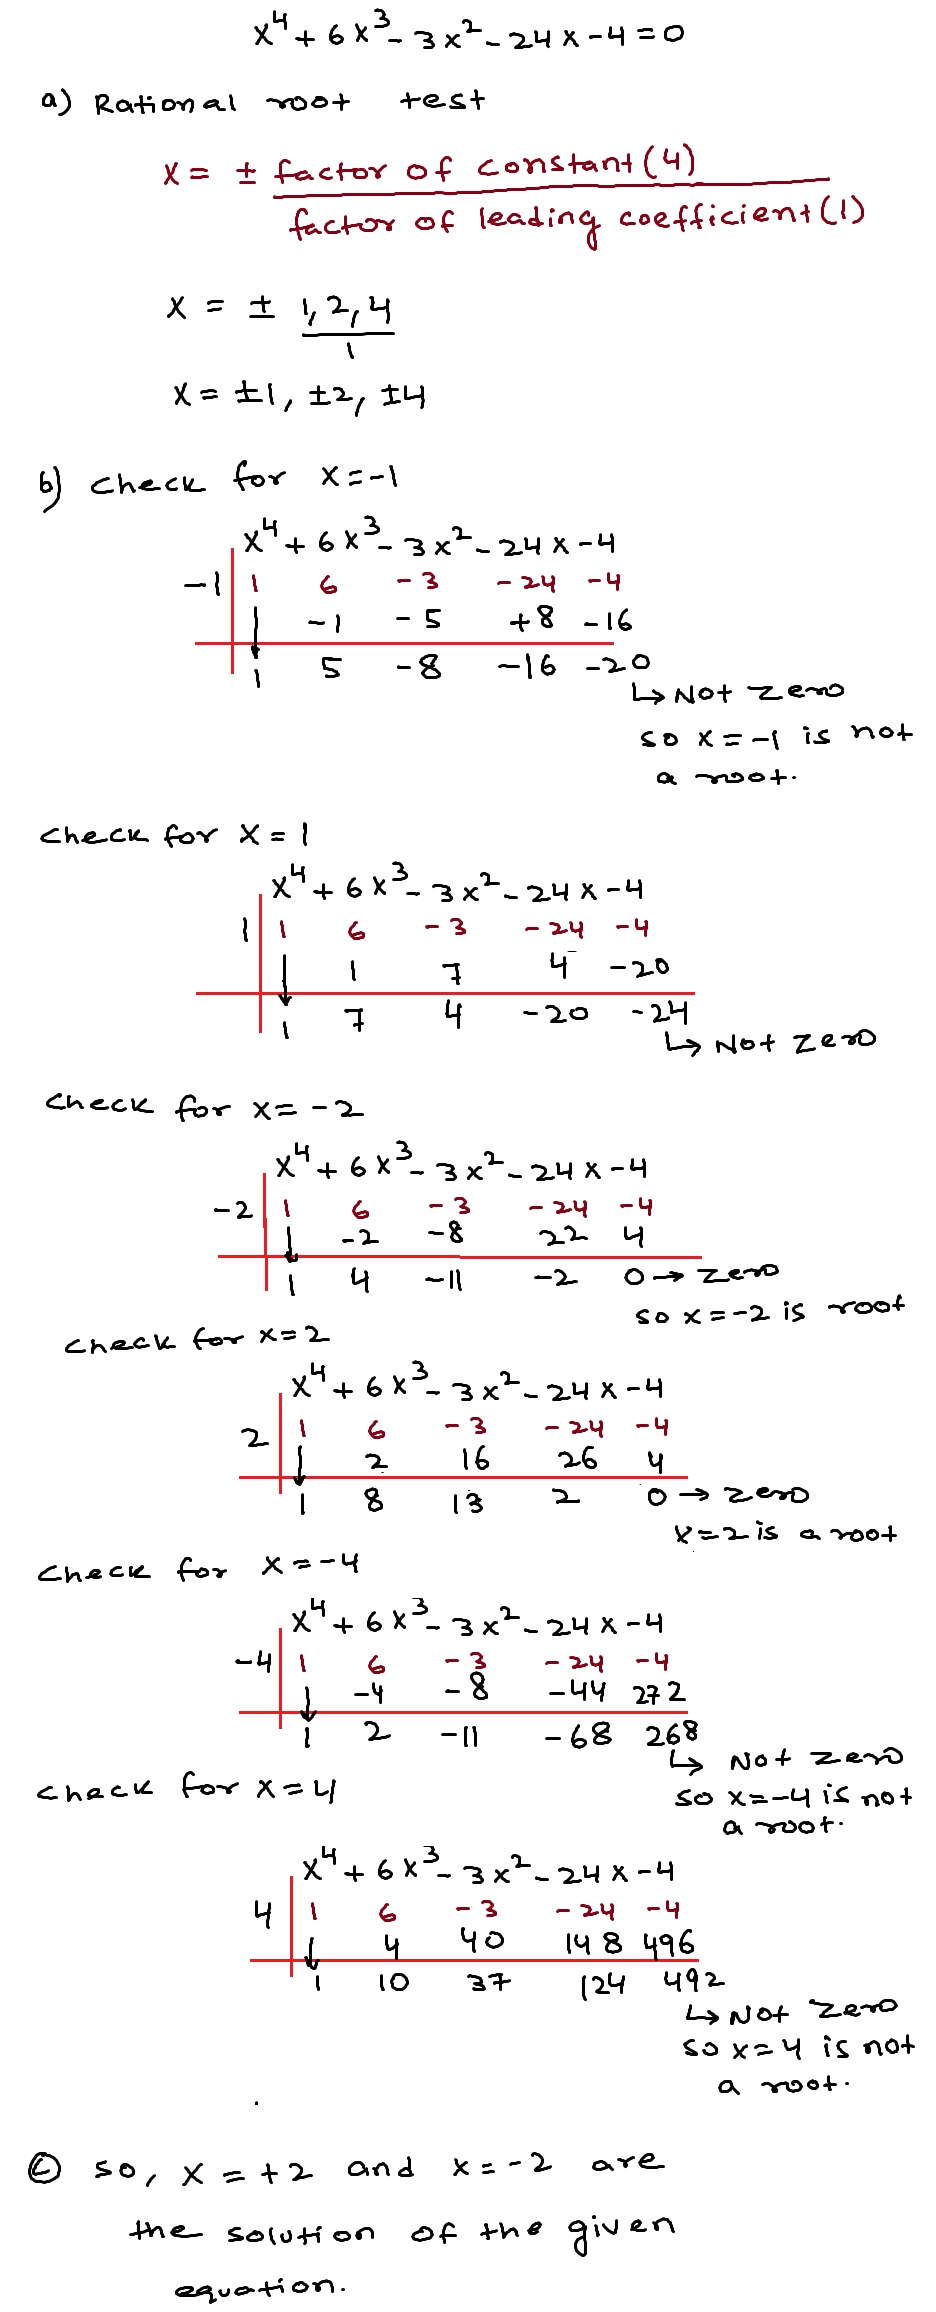 x⁴ + 6x³ - 3x² - 24x - 4 = 0
a) Rational root test
x = ± factor of constant (4)
factor of leading coefficient (1)
x = ± 1, 2, 4
1
x = ±1, ±2, ±4
b) check for x = -1
x⁴ + 6x³ - 3x² - 24x - 4
-1 | 1 6 -3 -24 -4
↓ -1 -5 +8 -16
1 5 -8 -16 -20
↳ Not zero
so x = -1 is not
a root.
check for x = 1
x⁴ + 6x³ - 3x² - 24x - 4
1 | 1 6 -3 -24 -4
↓ 1 7 4 -20
1 7 4 -20 -24
↳ Not zero
check for x = -2
x⁴ + 6x³ - 3x² - 24x - 4
-2 | 1 6 -3 -24 -4
↓ -2 -8 22 4
1 4 -11 -2 0 → zero
so x = -2 is root
check for x = 2
x⁴ + 6x³ - 3x² - 24x - 4
2 | 1 6 -3 -24 -4
↓ 2 16 26 4
1 8 13 2 0 → zero
x = 2 is a root
check for x = -4
x⁴ + 6x³ - 3x² - 24x - 4
-4 | 1 6 -3 -24 -4
↓ -4 -8 -44 272
1 2 -11 -68 268
↳ Not zero
so x = -4 is not
a root.
check for x = 4
x⁴ + 6x³ - 3x² - 24x - 4
4 | 1 6 -3 -24 -4
↓ 4 40 148 496
1 10 37 124 492
↳ Not zero
so x = 4 is not
a root.
ⓒ so, x = +2 and x = -2 are
the solution of the given
equation.